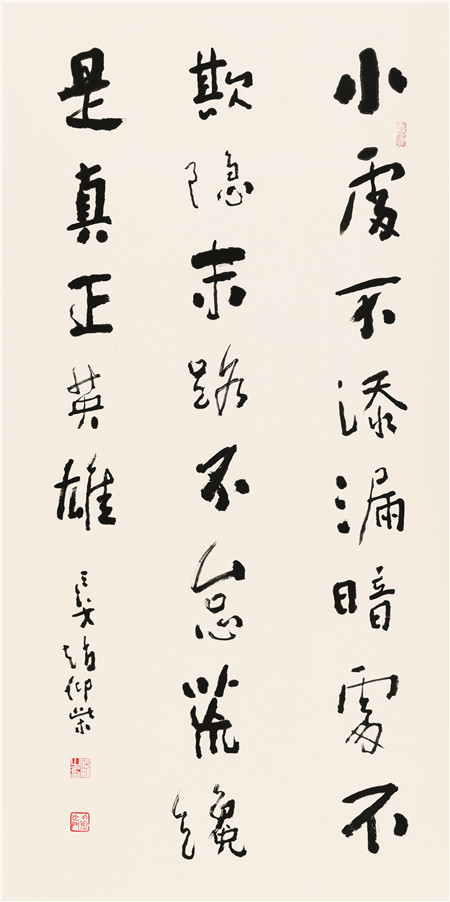 小處不渗漏暗處不
欺隐末路不怠荒纔
是真正英雄
趙仰柴